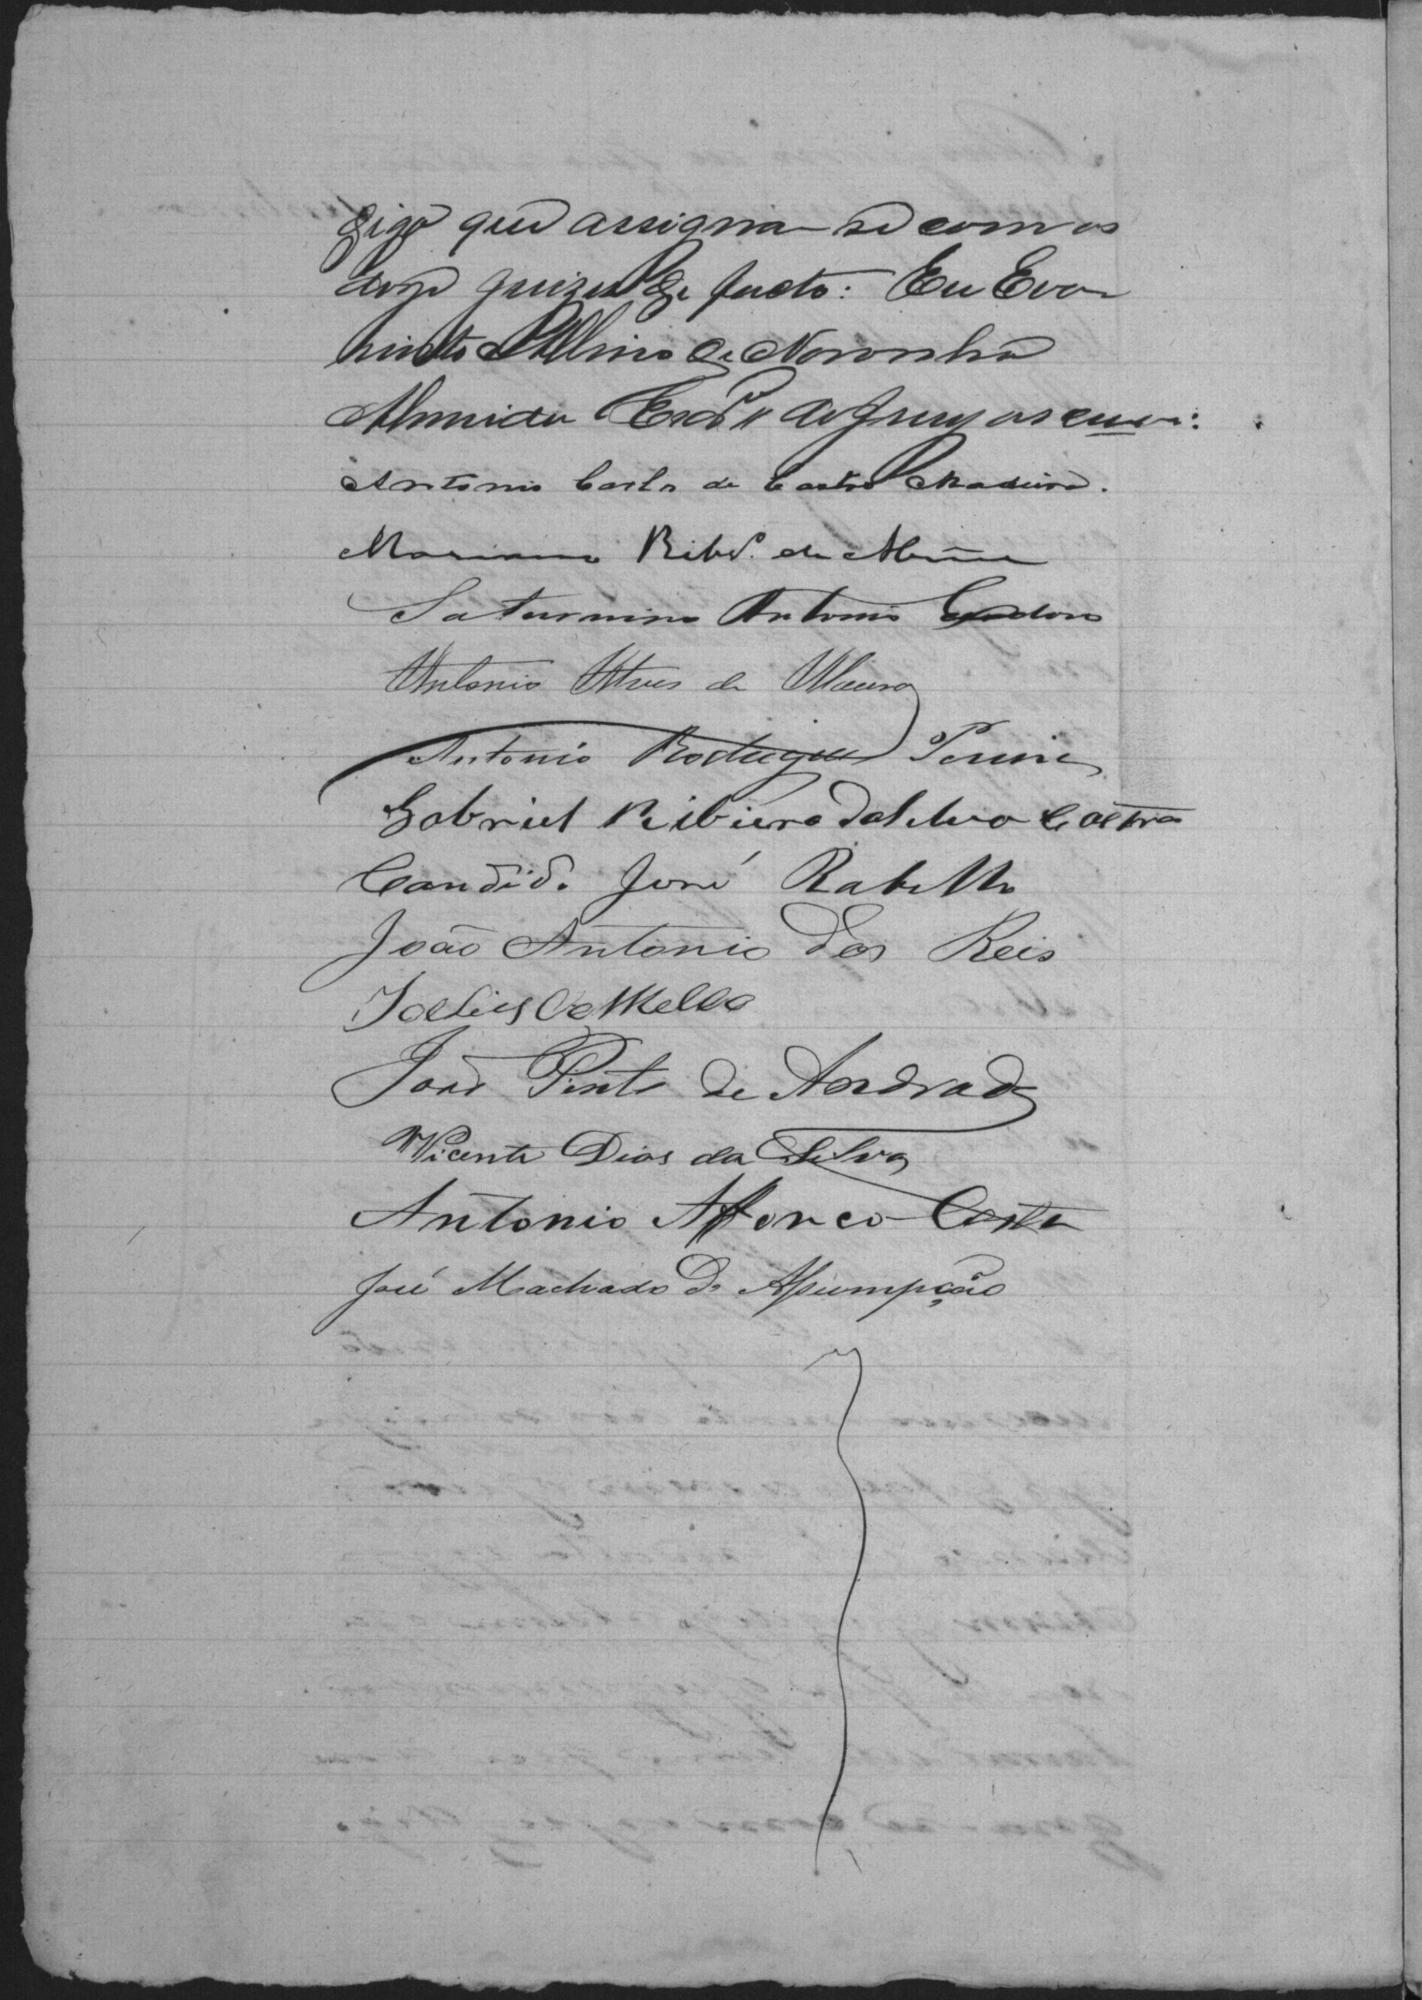 digo que assigna-se com os
doze juizes de facto: Eu Eva-
risto Albino de Noronha
Almeida Escr.ᵐ do Jury o escrevi:
Antonio Carlos de Castro Madeira.
Mariano Ribr.º de
Saturnino Antonio
Antonio Alves de Moura
Antonio Rodrigues
Gabriel Ribiero da Silva Castro
Candido José Rabello
João Antonio dos Reis
de Mello
João Pinto de Andrade
Vicente Dias da Silva
Antonio Affonco Costa
José Machado de Assumpção